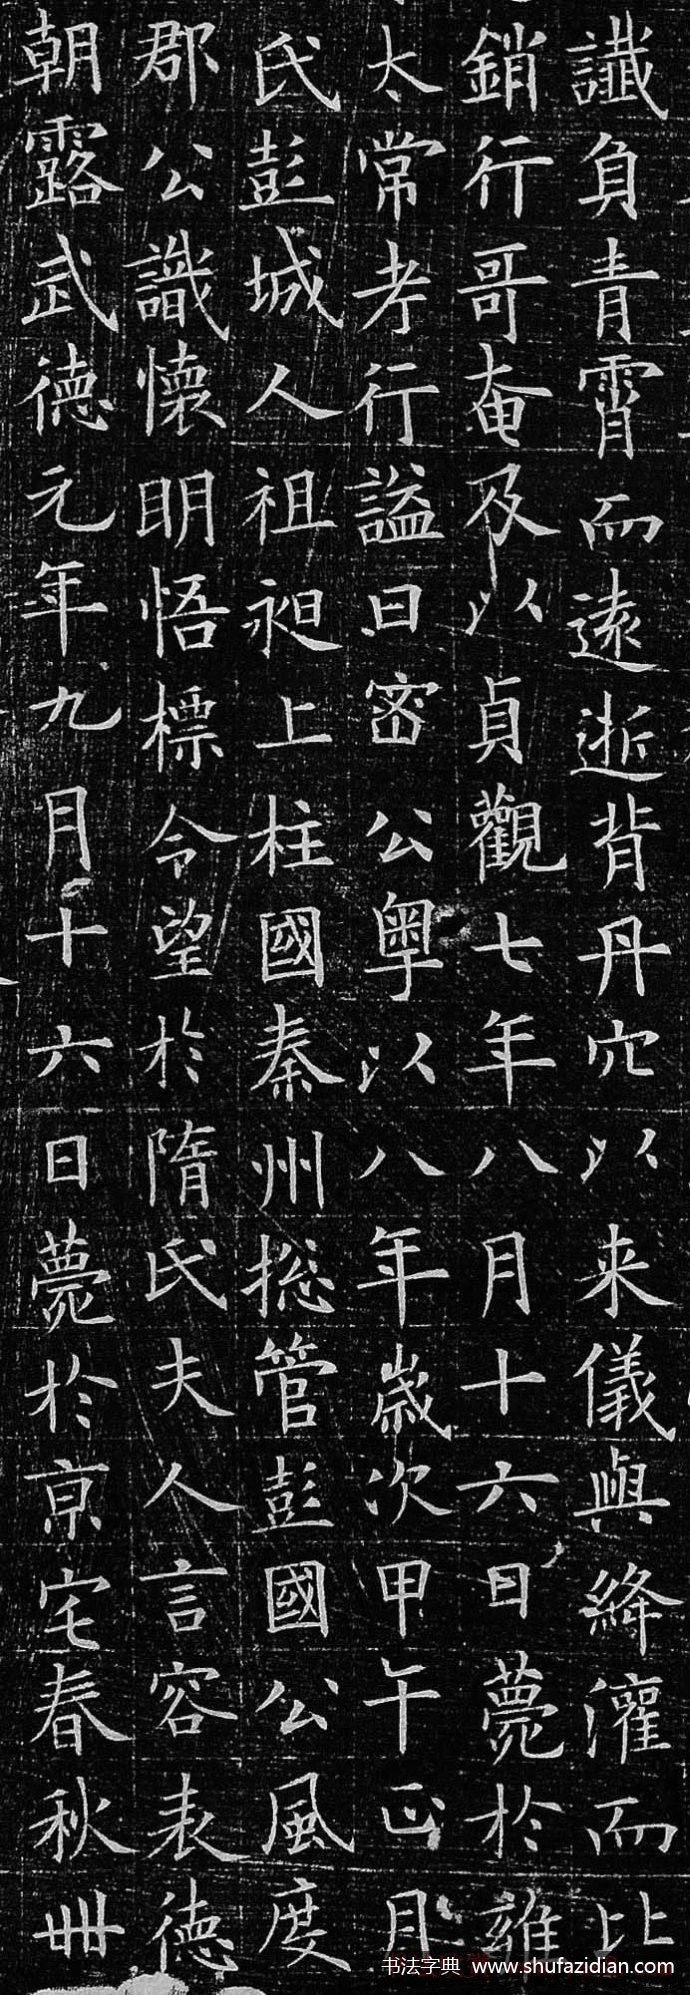 讖負青霄而遠逝背丹穴以来儀與絳灌而比
銷行哥奄及以貞觀七年八月十六日薨於雍
太常考行謚曰密公粤以八年歲次甲午正月
氏彭城人祖昶上柱國秦州捴管彭國公風度
郡公識懷明悟標令望於隋氏夫人言容表德
朝露武德元年九月十六日薨於京宅春秋卌
书法字典 www.shufazidian.com